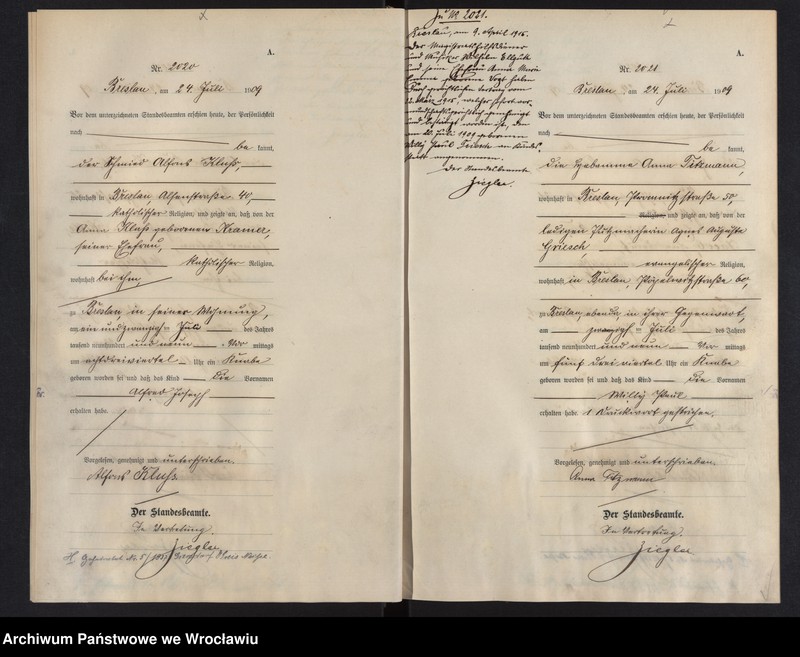 A.
Nr. 2020
Breslau, am 24. Juli 1909
Vor dem unterzeichneten Standesbeamten erschien heute, der Persönlichkeit
nach
be kannt,
der Schmied Alfons Kluß,
wohnhaft in Breslau Alsenstraße 40,
katholischer Religion, und zeigte an, daß von der
Anna Kluß geborenen Kramer,
seiner Ehefrau,
katholischer Religion,
wohnhaft bei ihm,
zu Breslau, in seiner Wohnung,
am ein und zwanzigsten Juli des Jahres
tausend neunhundert und neun Vor mittags
um acht dreiviertel Uhr ein Knabe
geboren worden sei und daß das Kind die Vornamen
Alfred Joseph
erhalten habe.
Vorgelesen, genehmigt und unterschrieben.
Alfons Kluß.
Der Standesbeamte.
In Vertretung.
Ziegler
Zu Nr. 2021.
Breslau, am 9. April 1915.
Der
und Wilhelm
und seine Ehefrau Anna Maria
geborene Vogt haben
den
am 20. Juli 1909 geborenen
Willy Paul an Kindes-
statt angenommen.
Der Standesbeamte
Ziegler.
A.
Nr. 2021
Breslau, am 24. Juli 1909
Vor dem unterzeichneten Standesbeamten erschien heute, der Persönlichkeit
nach
be kannt,
die Hebamme Anna Titzmann,
wohnhaft in Breslau, Posenitzstraße 50,
Religion, und zeigte an, daß von der
ledigen Putzmacherin Agnes Auguste
Griesch,
evangelischer Religion,
wohnhaft in Breslau, Pöpelwitzstraße 60,
zu Breslau, ebenda, in ihrer Gegenwart,
am zwanzigsten Juli des Jahres
tausend neunhundert und neun Vor mittags
um fünf drei viertel Uhr ein Knabe
geboren worden sei und daß das Kind die Vornamen
Willy Paul
erhalten habe. 1 Druckwort gestrichen.
Vorgelesen, genehmigt und unterschrieben.
Anna Titzmann
Der Standesbeamte.
In Vertretung.
Ziegler
Archiwum Państwowe we Wrocławiu